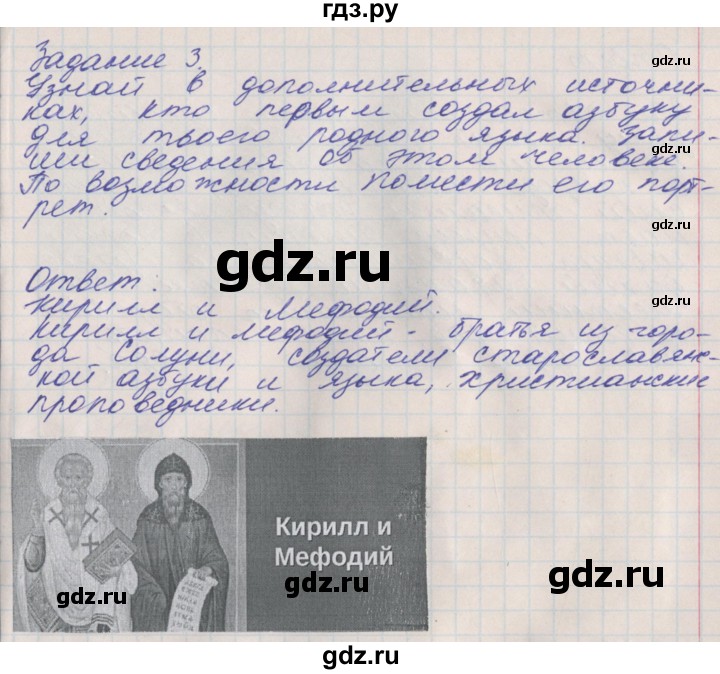 гдз.ру
Задание 3.
Узнай в дополнительных источни-
ках, кто первым создал азбуку
для твоего родного языка. Запи-
ши сведения об этом человеке.
По возможности помести его порт-
рет.
Ответ:
Кирилл и Мефодий.
Кирилл и Мефодий - братья из горо-
да Солуни, создатели старославянс-
кой азбуки и языка, христианские
проповедники.
Кирилл и
Мефодий
gdz.ru
gdz.ru
gdz.ru
gdz.ru
gdz.ru
gdz.ru
gdz.ru
gdz.ru
gdz.ru
gdz.ru